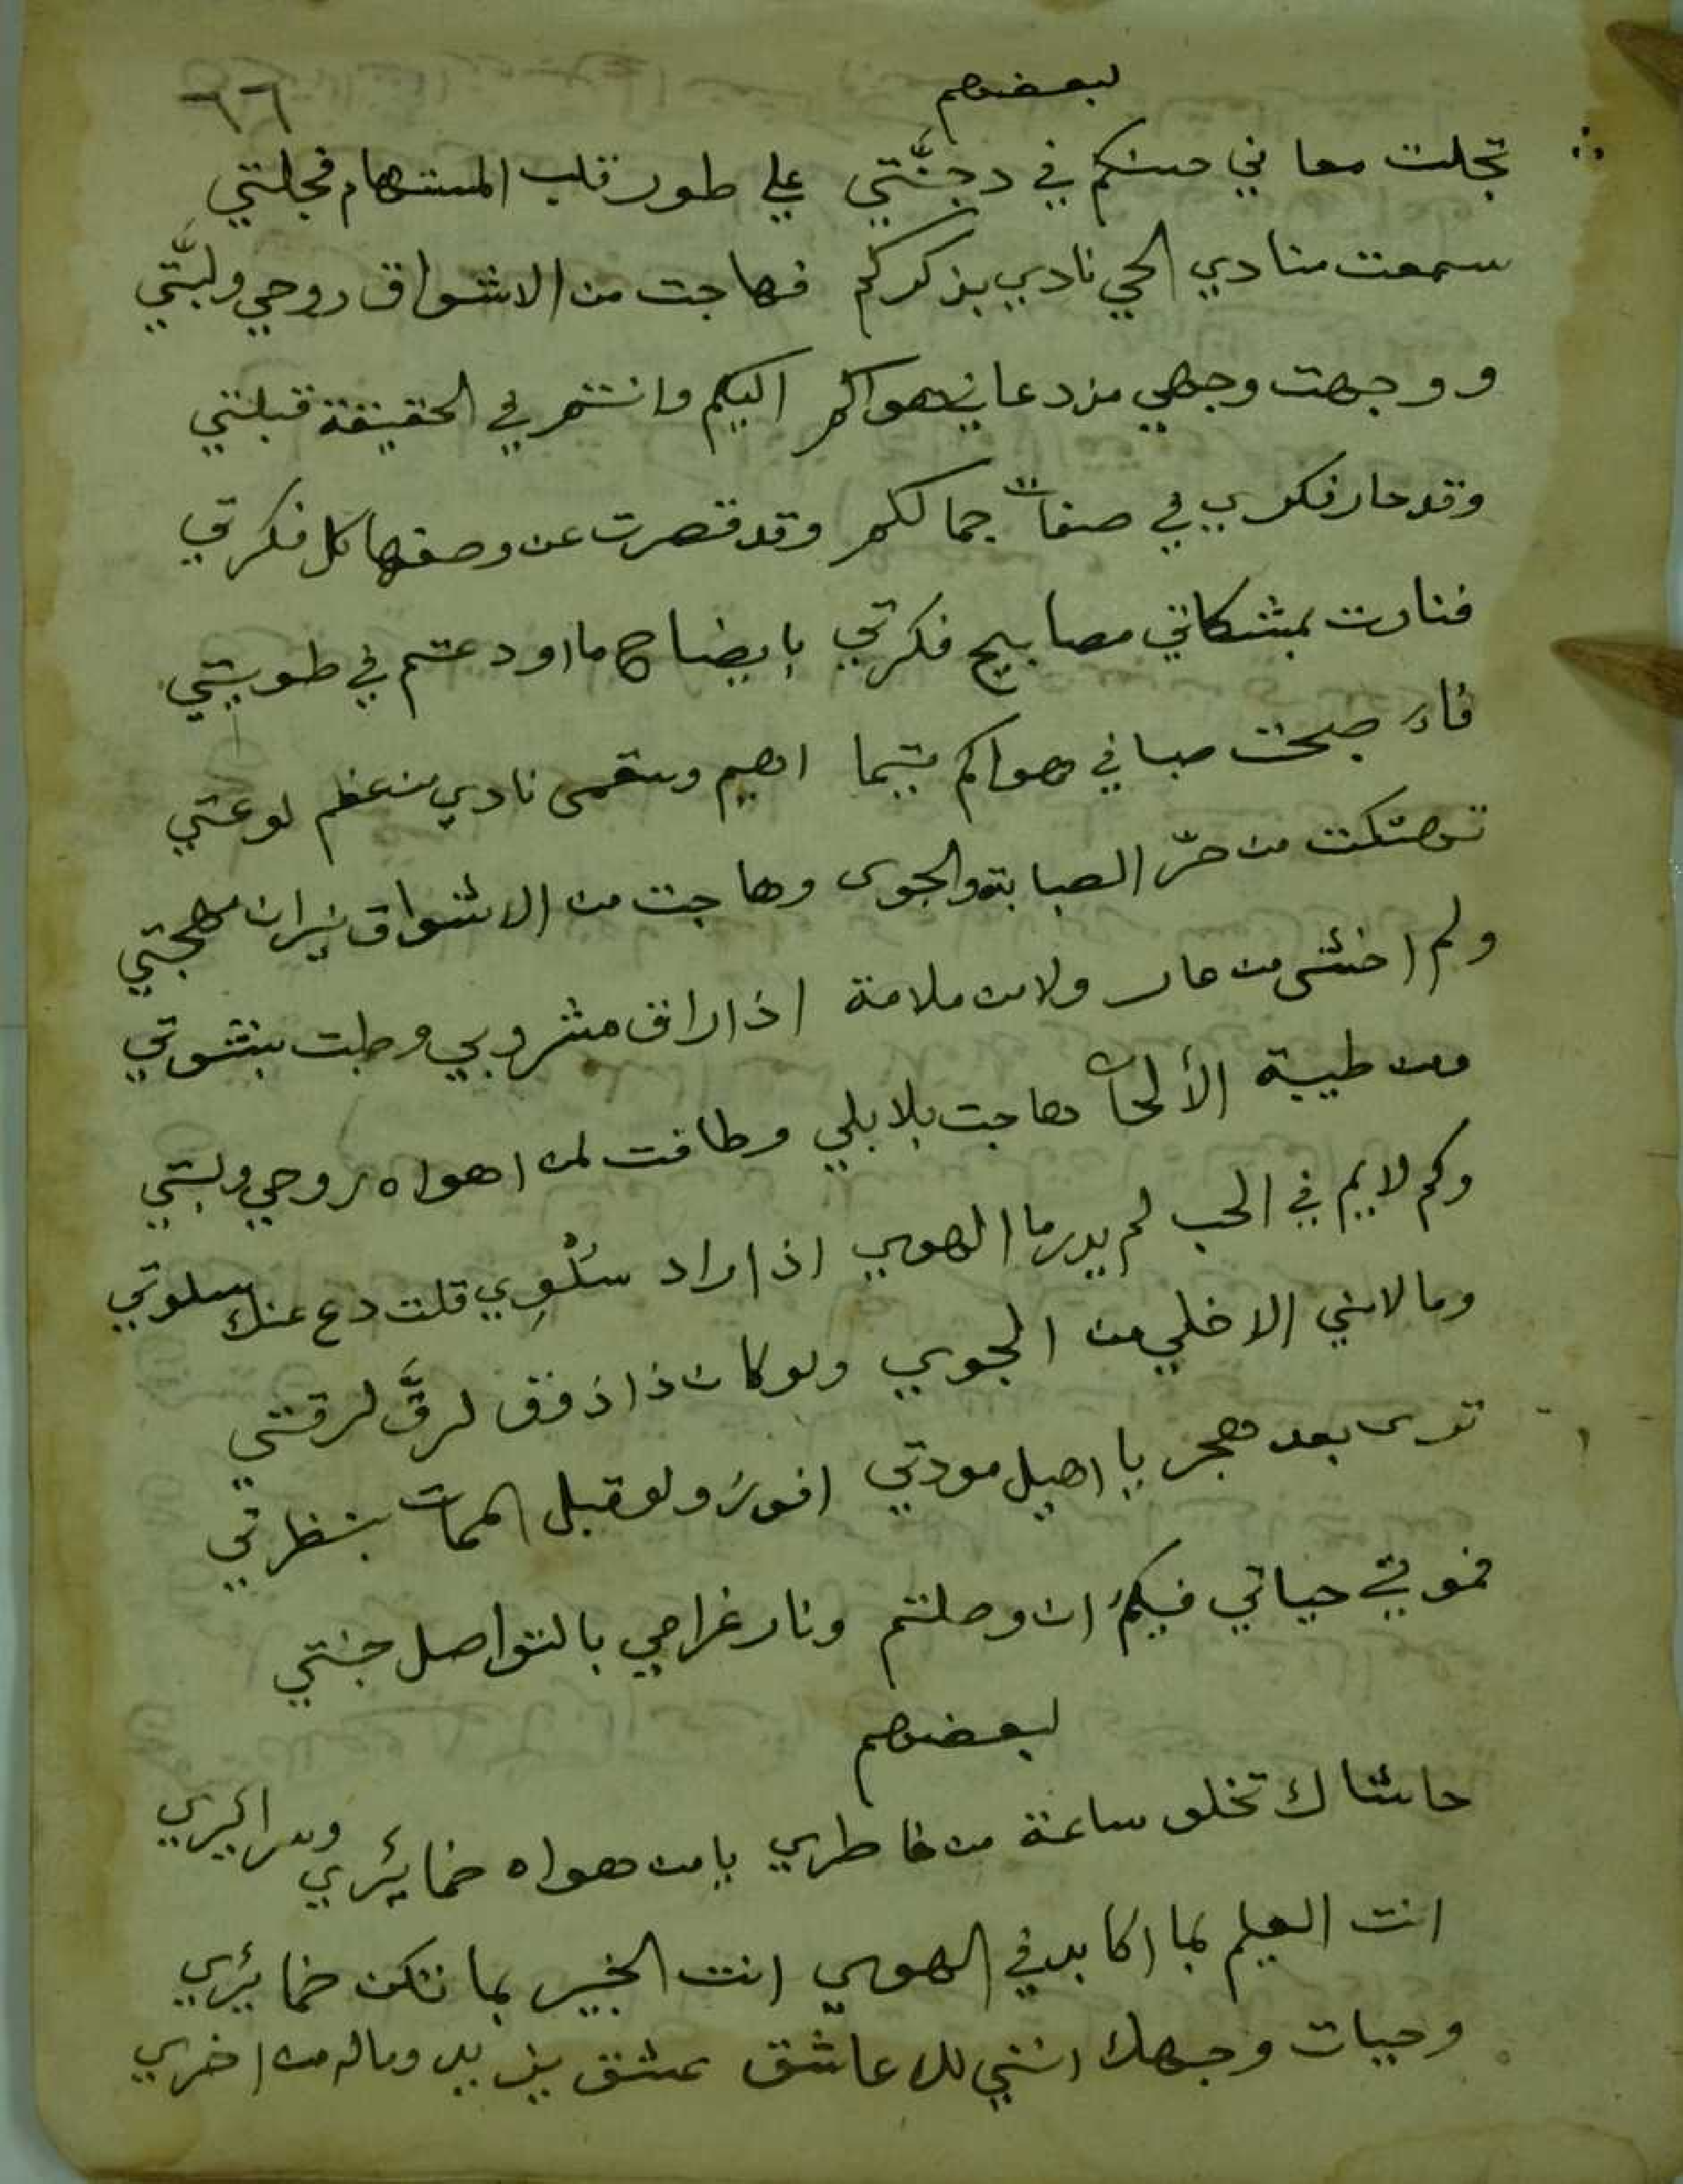 ٦٦
لبعضهم
تجلت معاني حسنكم في دجنَّتي على طور قلب المستهام فجلتي
سمعت منادي الحي نادي بذكركم فهاجت من الاشواق روحي ولبَّتي
ووجهت وجهي مذ دعاني هواكم اليكم وانتم في الحقيقة قبلتي
وقد حار فكري في صفات جمالكم وقد قصرت عن وصفها كل فكرتي
فنارت بمشكاتي مصابيح فكرتي بايضاح ما اودعتم في طويتي
فاصبحت صبا في هواكم متيما اهيم وسقمى نادي من عظم لوعتي
تهتكت من حرّ الصبابة والجوى وهاجت من الاشواق نيران مهجتي
ولم اخشى من عار ولا من ملامة اذا راق مشروبي وطبت بنشوتي
ومن طيبة الألحان هاجت بلابلي وطافت لمن اهواه روحي ولبتي
وكم لايم في الحب لم يدر ما الهوي اذا راد سُلْوِي قلت دع عنك سلوتي
وما لامني الا خلي من الجوي ولو كان ذا ذوق لرقَّ لرقتي
ترى بعد هجر يا اهيل مودتي افوز ولو قبل الممات بنظرتي
فموتي حياتي فيكم ان وصلتم ونار غرامي بالتواصل جنتي
لبعضهم
حاشاك تخلو ساعة من خاطري يا من هواه ضمايئري وسرايري
انت العليم بما اكابد في الهوي انت الخبير بما تكن ضمايئري
وحيات وجهك انني لك عاشق عشق يزيد وماله من اخري